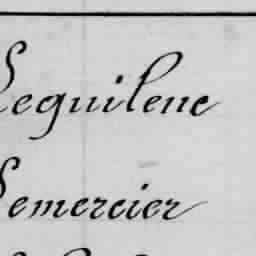 Leguilene
Lemercier